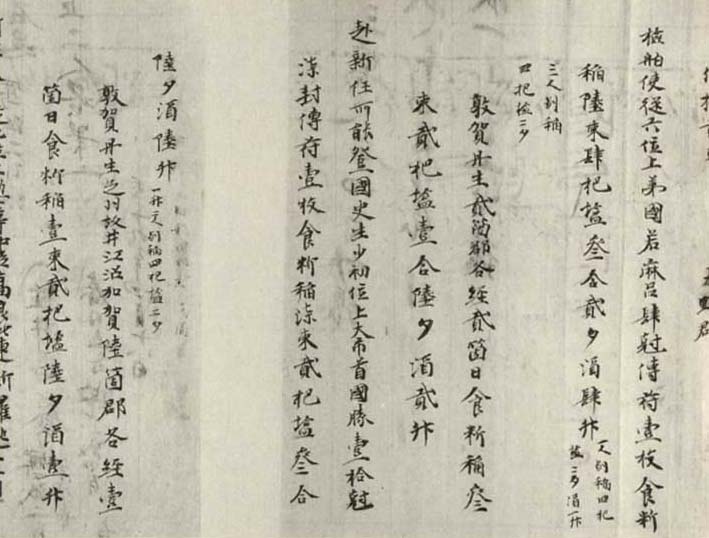 検舶使従六位上弟國若麻呂肆剋傳符壹枚食料
稲陸束肆把塩叄合貳夕酒肆升 一人別稲四把塩二夕酒一升
三人別稲四把塩二夕
敦賀丹生貳箇郡各経貳箇日食料稲叄
束貳把塩壹合陸夕酒貳升
赴新任所能登國史生少初位上大市首國勝壹拾剋
漆封傳符壹枚食料稲漆束貳把塩叄合
陸夕酒陸升 一升一人別稲四把塩二夕
敦賀丹生足羽坂井江沼加賀陸箇郡各経壹
箇日食料稲壹束貳把塩陸夕酒壹升